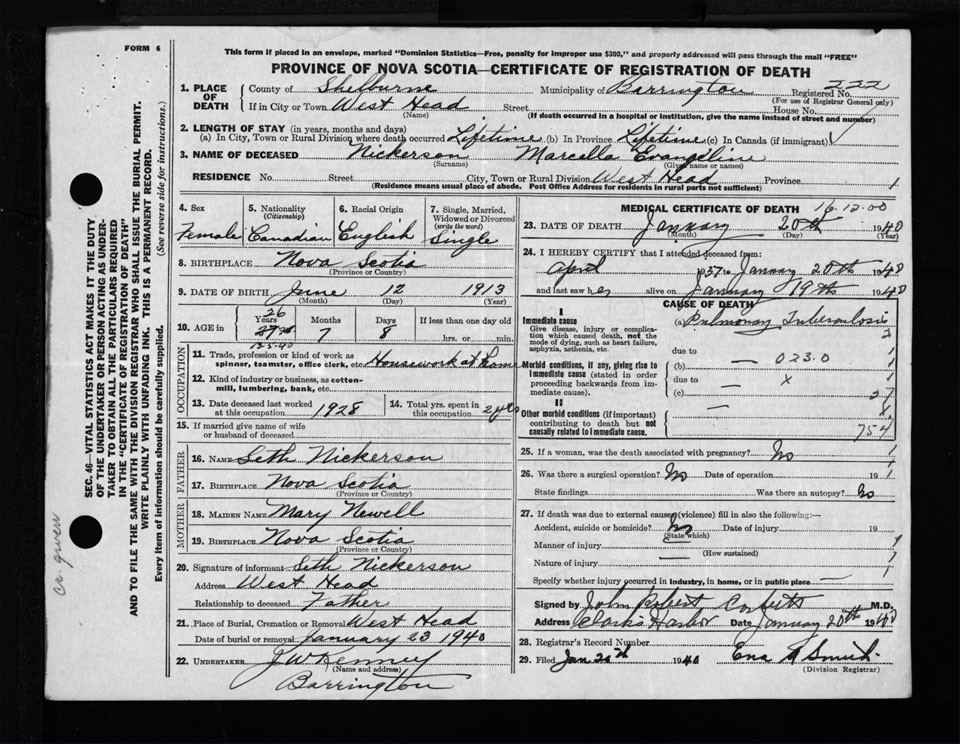 FORM 6
This form if placed in an envelope, marked "Dominion Statistics—Free, penalty for improper use $300," and properly addressed will pass through the mail "FREE"
PROVINCE OF NOVA SCOTIA—CERTIFICATE OF REGISTRATION OF DEATH
SEC. 46—VITAL STATISTICS ACT MAKES IT THE DUTY
OF THE UNDERTAKER OR PERSON ACTING AS UNDER-
TAKER TO OBTAIN ALL THE PARTICULARS REQUIRED
IN THE "CERTIFICATE OF REGISTRATION OF DEATH"
AND TO FILE THE SAME WITH THE DIVISION REGISTRAR WHO SHALL ISSUE THE BURIAL PERMIT.
WRITE PLAINLY WITH UNFADING INK. THIS IS A PERMANENT RECORD.
Every item of information should be carefully supplied. (See reverse side for instructions.)
1. PLACE OF DEATH
County of Shelburne Municipality of Barrington Registered No. 222
(For use of Registrar General only)
If in City or Town West Head Street House No.
(Name) (If death occurred in a hospital or institution, give the name instead of street and number)
2. LENGTH OF STAY (in years, months and days)
(a) In City, Town or Rural Division where death occurred Lifetime (b) In Province Lifetime (c) In Canada (if immigrant)
3. NAME OF DECEASED Nickerson Marcella Evangeline
(Surname) (Given name or names)
RESIDENCE No. Street City, Town or Rural Division West Head Province
(Residence means usual place of abode. Post Office Address for residents in rural parts not sufficient)
4. Sex Female
5. Nationality (Citizenship) Canadian
6. Racial Origin English
7. Single, Married, Widowed or Divorced (write the word) Single
8. BIRTHPLACE Nova Scotia
(Province or Country)
9. DATE OF BIRTH June 12 1913
(Month) (Day) (Year)
10. AGE in 26 Years 7 Months 8 Days If less than one day old hrs. or min.
OCCUPATION
11. Trade, profession or kind of work as spinner, teamster, office clerk, etc. Housework at home
12. Kind of industry or business, as cotton-mill, lumbering, bank, etc.
13. Date deceased last worked at this occupation 1928
14. Total yrs. spent in this occupation 2 yrs
15. If married give name of wife or husband of deceased
FATHER
16. NAME Seth Nickerson
17. BIRTHPLACE Nova Scotia
(Province or Country)
MOTHER
18. MAIDEN NAME Mary Newell
19. BIRTHPLACE Nova Scotia
(Province or Country)
20. Signature of informant Seth Nickerson
Address West Head
Relationship to deceased Father
21. Place of Burial, Cremation or Removal West Head
Date of burial or removal January 23 1940
22. UNDERTAKER J W Kenney
(Name and address)
Barrington
MEDICAL CERTIFICATE OF DEATH 16.12.00
23. DATE OF DEATH January 20th 1940
(Month) (Day) (Year)
24. I HEREBY CERTIFY that I attended deceased from
April 1937 to January 20th 1940
and last saw her alive on January 19th 1940
CAUSE OF DEATH
I
Immediate cause (a) Pulmonary Tuberculosis
Give disease, injury or complication which caused death, not the mode of dying, such as heart failure, asphyxia, asthenia, etc.
due to 023.0
Morbid conditions, if any, giving rise to immediate cause (stated in order proceeding backwards from immediate cause).
(b) due to x
(c)
II
Other morbid conditions (if important) contributing to death but not causally related to immediate cause.
754
25. If a woman, was the death associated with pregnancy? No
26. Was there a surgical operation? No Date of operation 19
State findings Was there an autopsy? No
27. If death was due to external causes (violence) fill in also the following:—
Accident, suicide or homicide? No Date of injury 19
(State which)
Manner of injury
(How sustained)
Nature of injury
Specify whether injury occurred in industry, in home, or in public place
Signed by John Robert Corbett M.D.
Address Clarks Harbor Date January 20th 1940
28. Registrar's Record Number
29. Filed Jan 20th 1940 Ena A Smith
(Division Registrar)